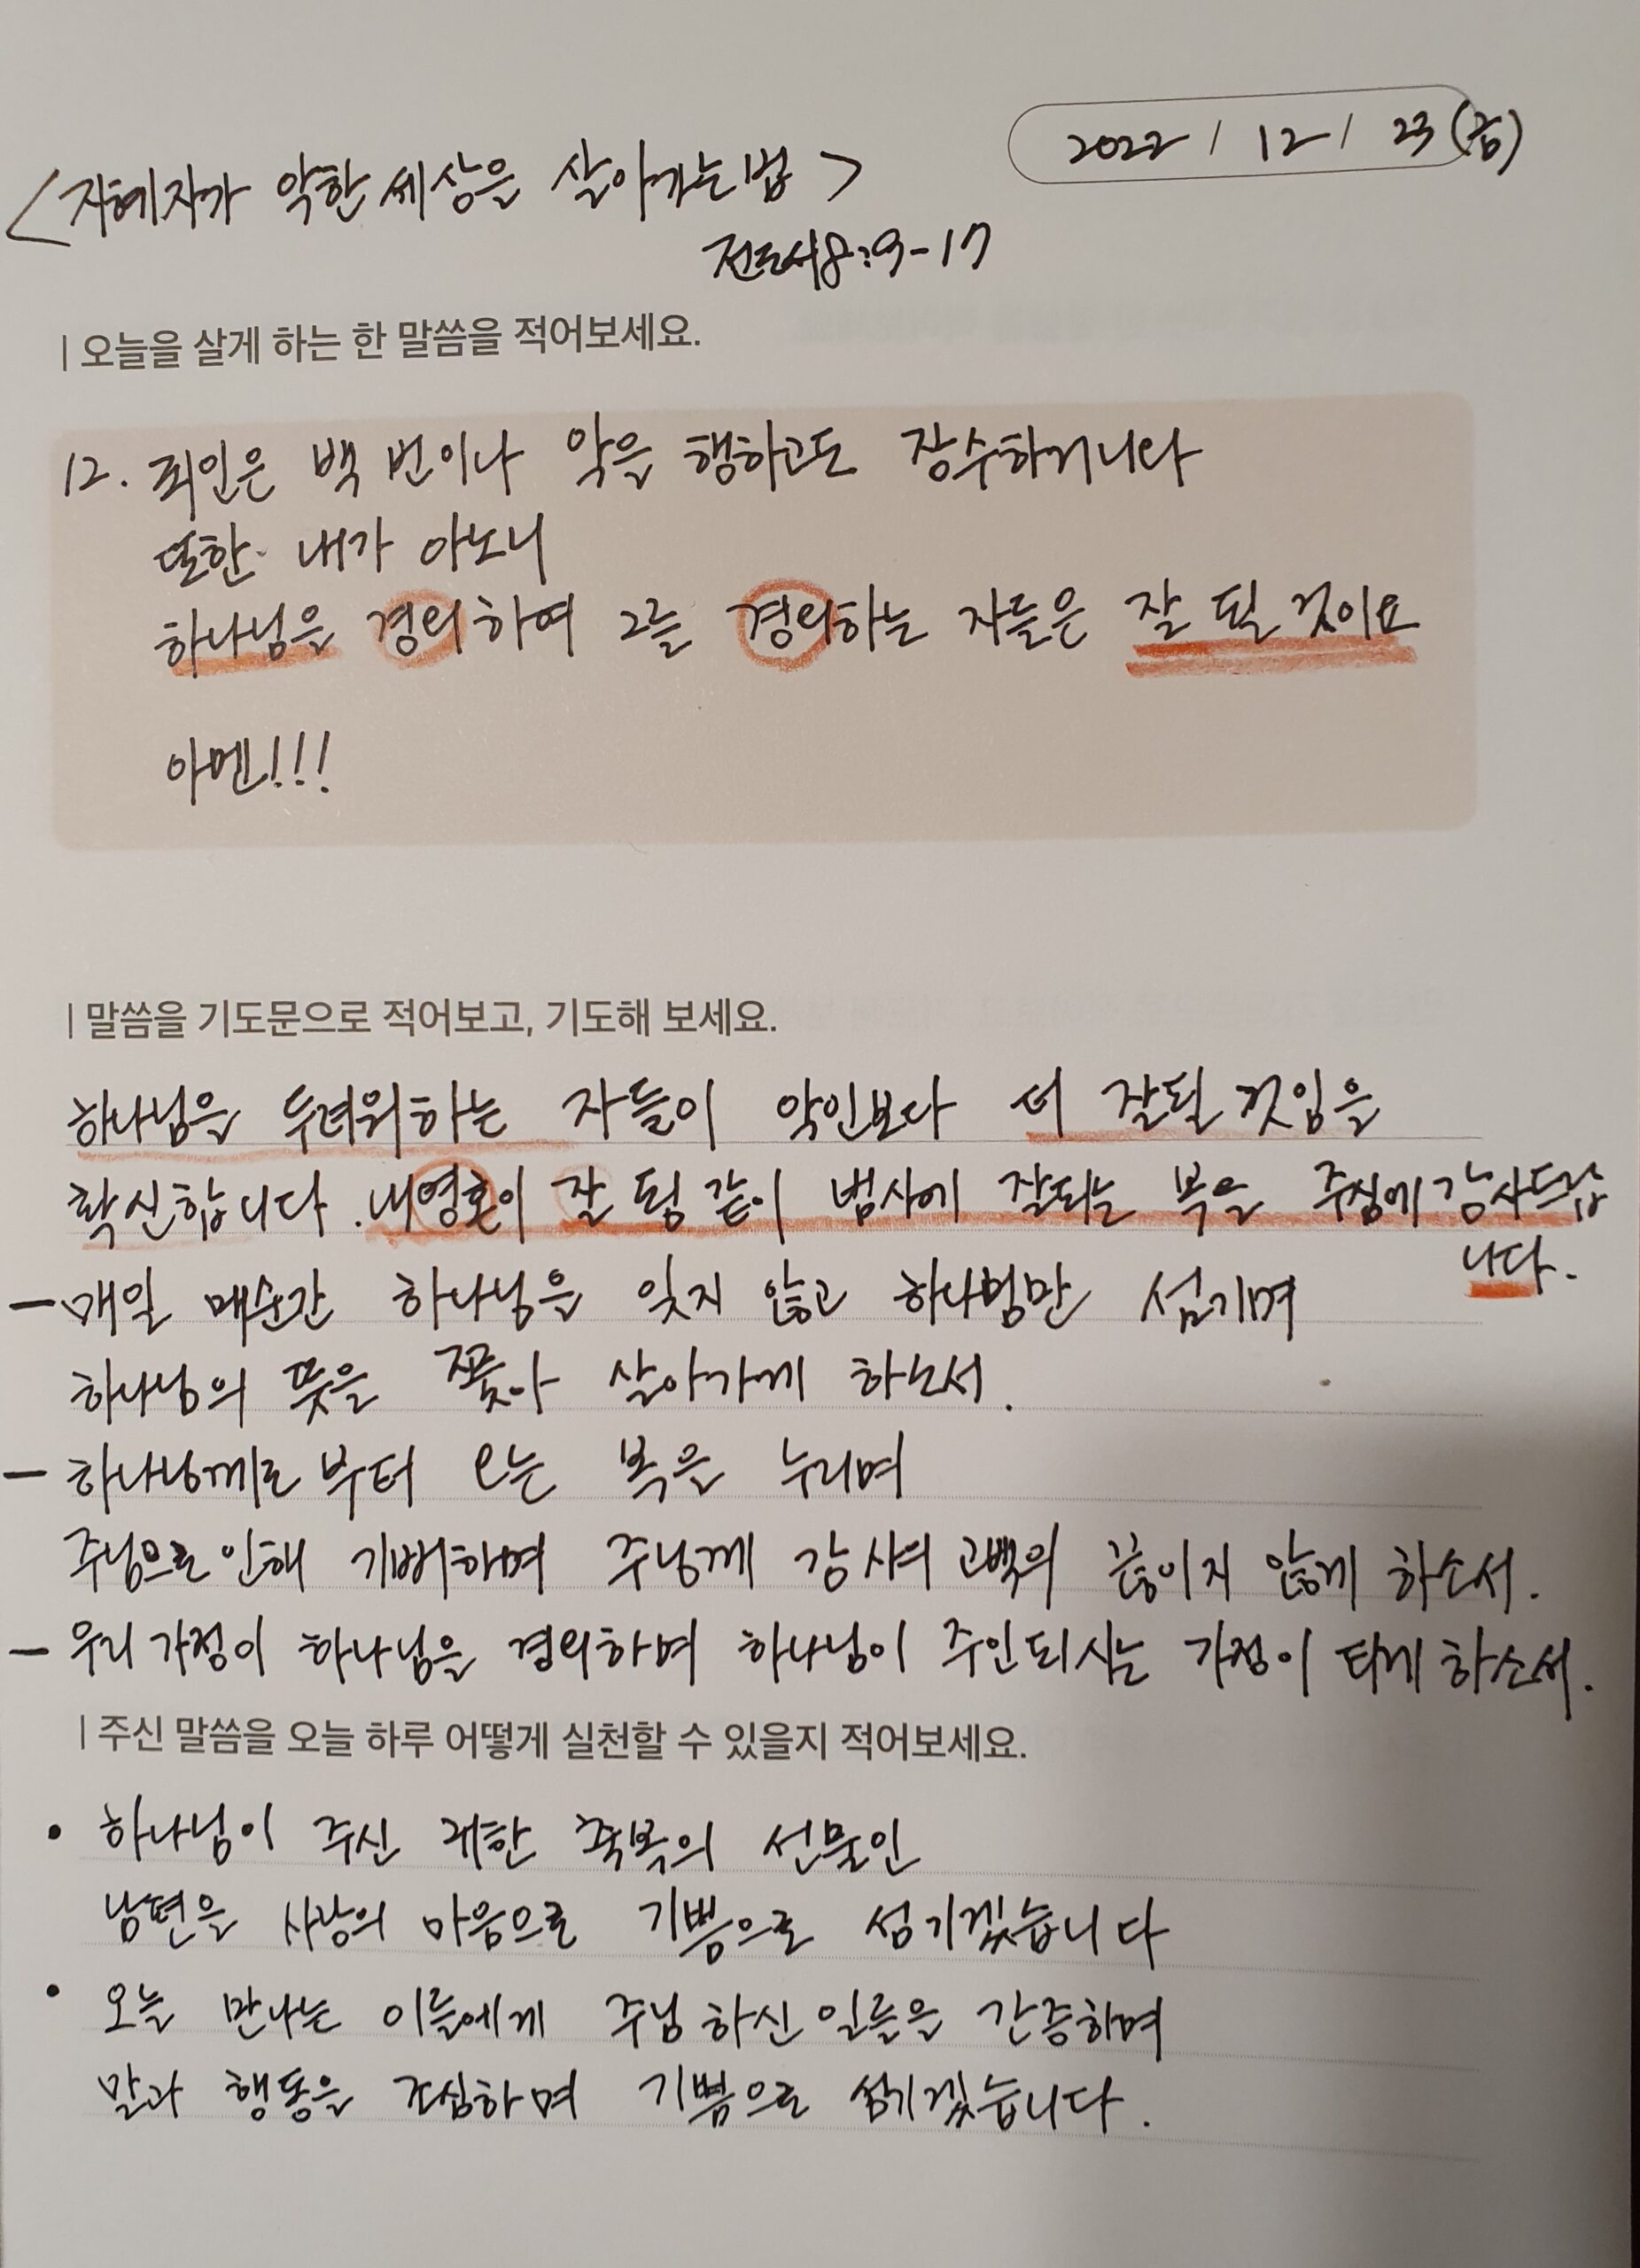 2022 / 12 / 23 (금)
<지혜자가 악한 세상을 살아가는 법>
전도서 8:9-17
| 오늘을 살게 하는 한 말씀을 적어보세요.
12. 죄인은 백 번이나 악을 행하고도 장수하거니와
또한 내가 아노니
하나님을 경외하여 그를 경외하는 자들은 잘 될 것이요
아멘!!!
| 말씀을 기도문으로 적어보고, 기도해 보세요.
하나님을 두려워하는 자들이 악인보다 더 잘될 것임을
확신합니다. 내영혼이 잘 됨 같이 범사에 잘되는 복을 주심에 감사드립
니다.
- 매일 매순간 하나님을 잊지 않고 하나님만 섬기며
하나님의 뜻을 쫓아 살아가게 하소서.
- 하나님께로부터 오는 복을 누리며
주님으로 인해 기뻐하며 주님께 감사의 고백의 끊이지 않게 하소서.
- 우리 가정이 하나님을 경외하며 하나님이 주인되시는 가정이 되게 하소서.
| 주신 말씀을 오늘 하루 어떻게 실천할 수 있을지 적어보세요.
• 하나님이 주신 귀한 축복의 선물인
남편을 사랑의 마음으로 기쁨으로 섬기겠습니다
• 오늘 만나는 이들에게 주님 하신 일들을 간증하며
말과 행동을 조심하며 기쁨으로 섬기겠습니다.